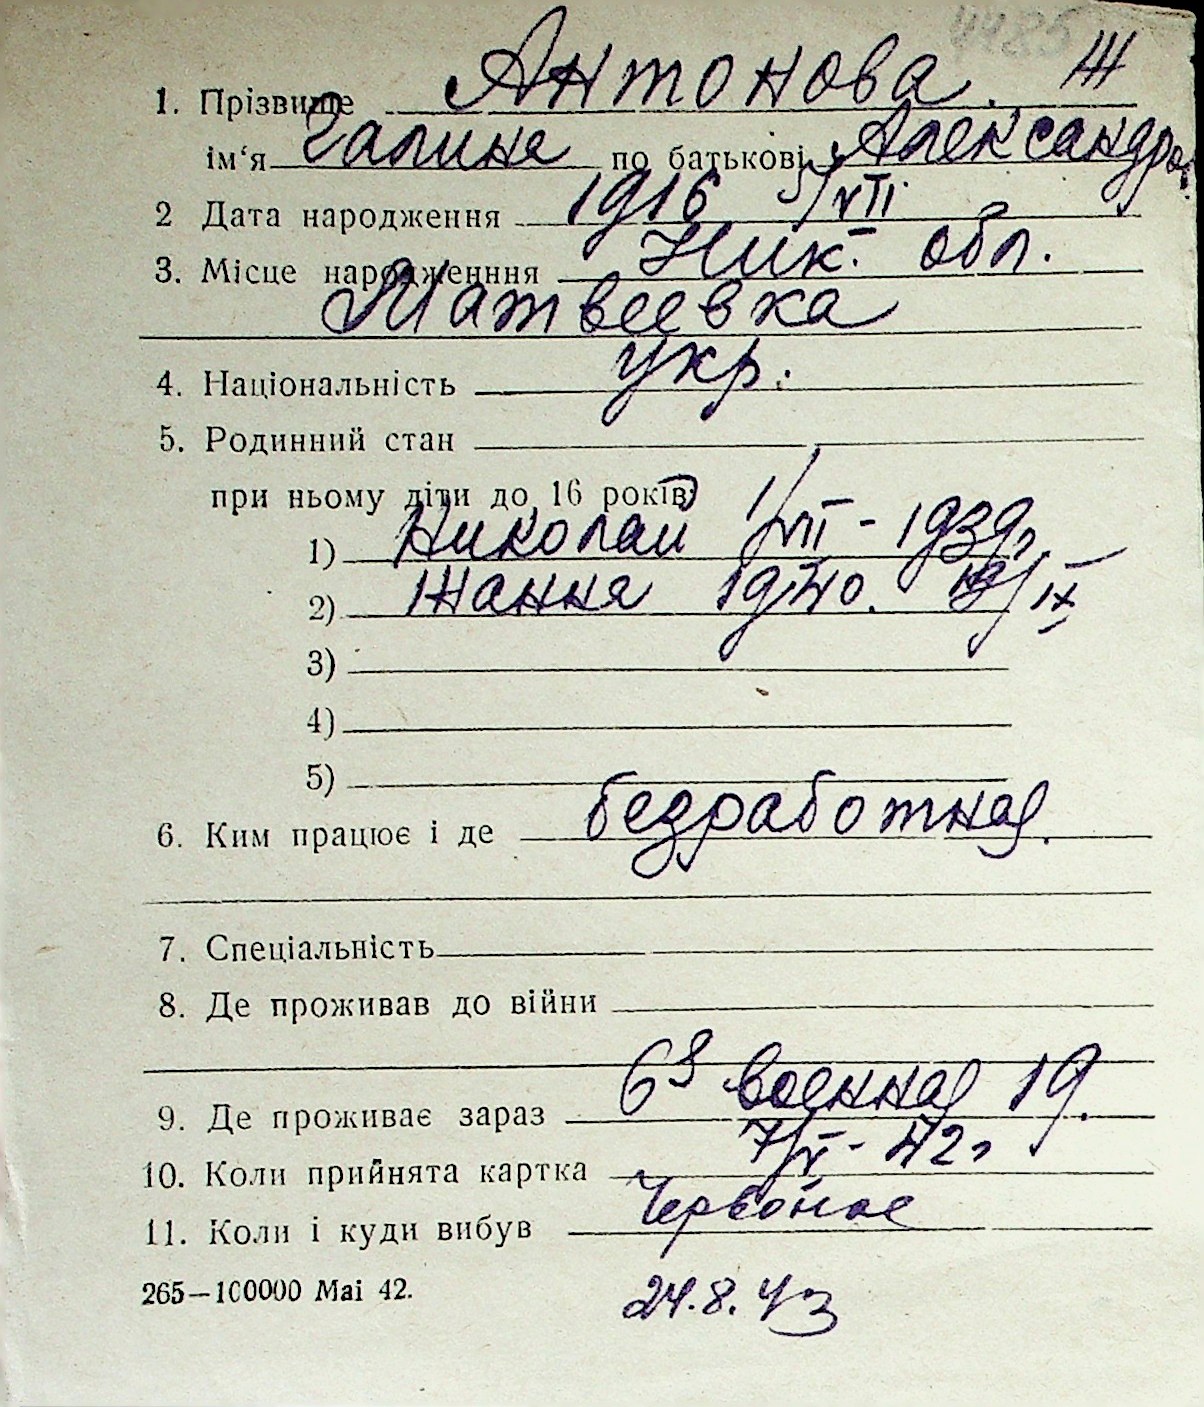 4485
1. Прізвище Антонова. Ж
ім'я Галина по батькові Александр.
2 Дата народження 1916 5/VII.
3. Місце народженння Ник. обл.
Матвеевка
4. Національність укр.
5. Родинний стан
при ньому діти до 16 років:
1) Николай 1/VII - 1939г.
2) Жанна 1940. /IX
3)
4)
5)
6. Ким працює і де безработная.
7. Спеціальність
8. Де проживав до війни
9. Де проживає зараз 6я военная 19.
10. Коли прийнята картка 7/V - 42г
11. Коли і куди вибув Червоное
265—100000 Mai 42.
24.8.43